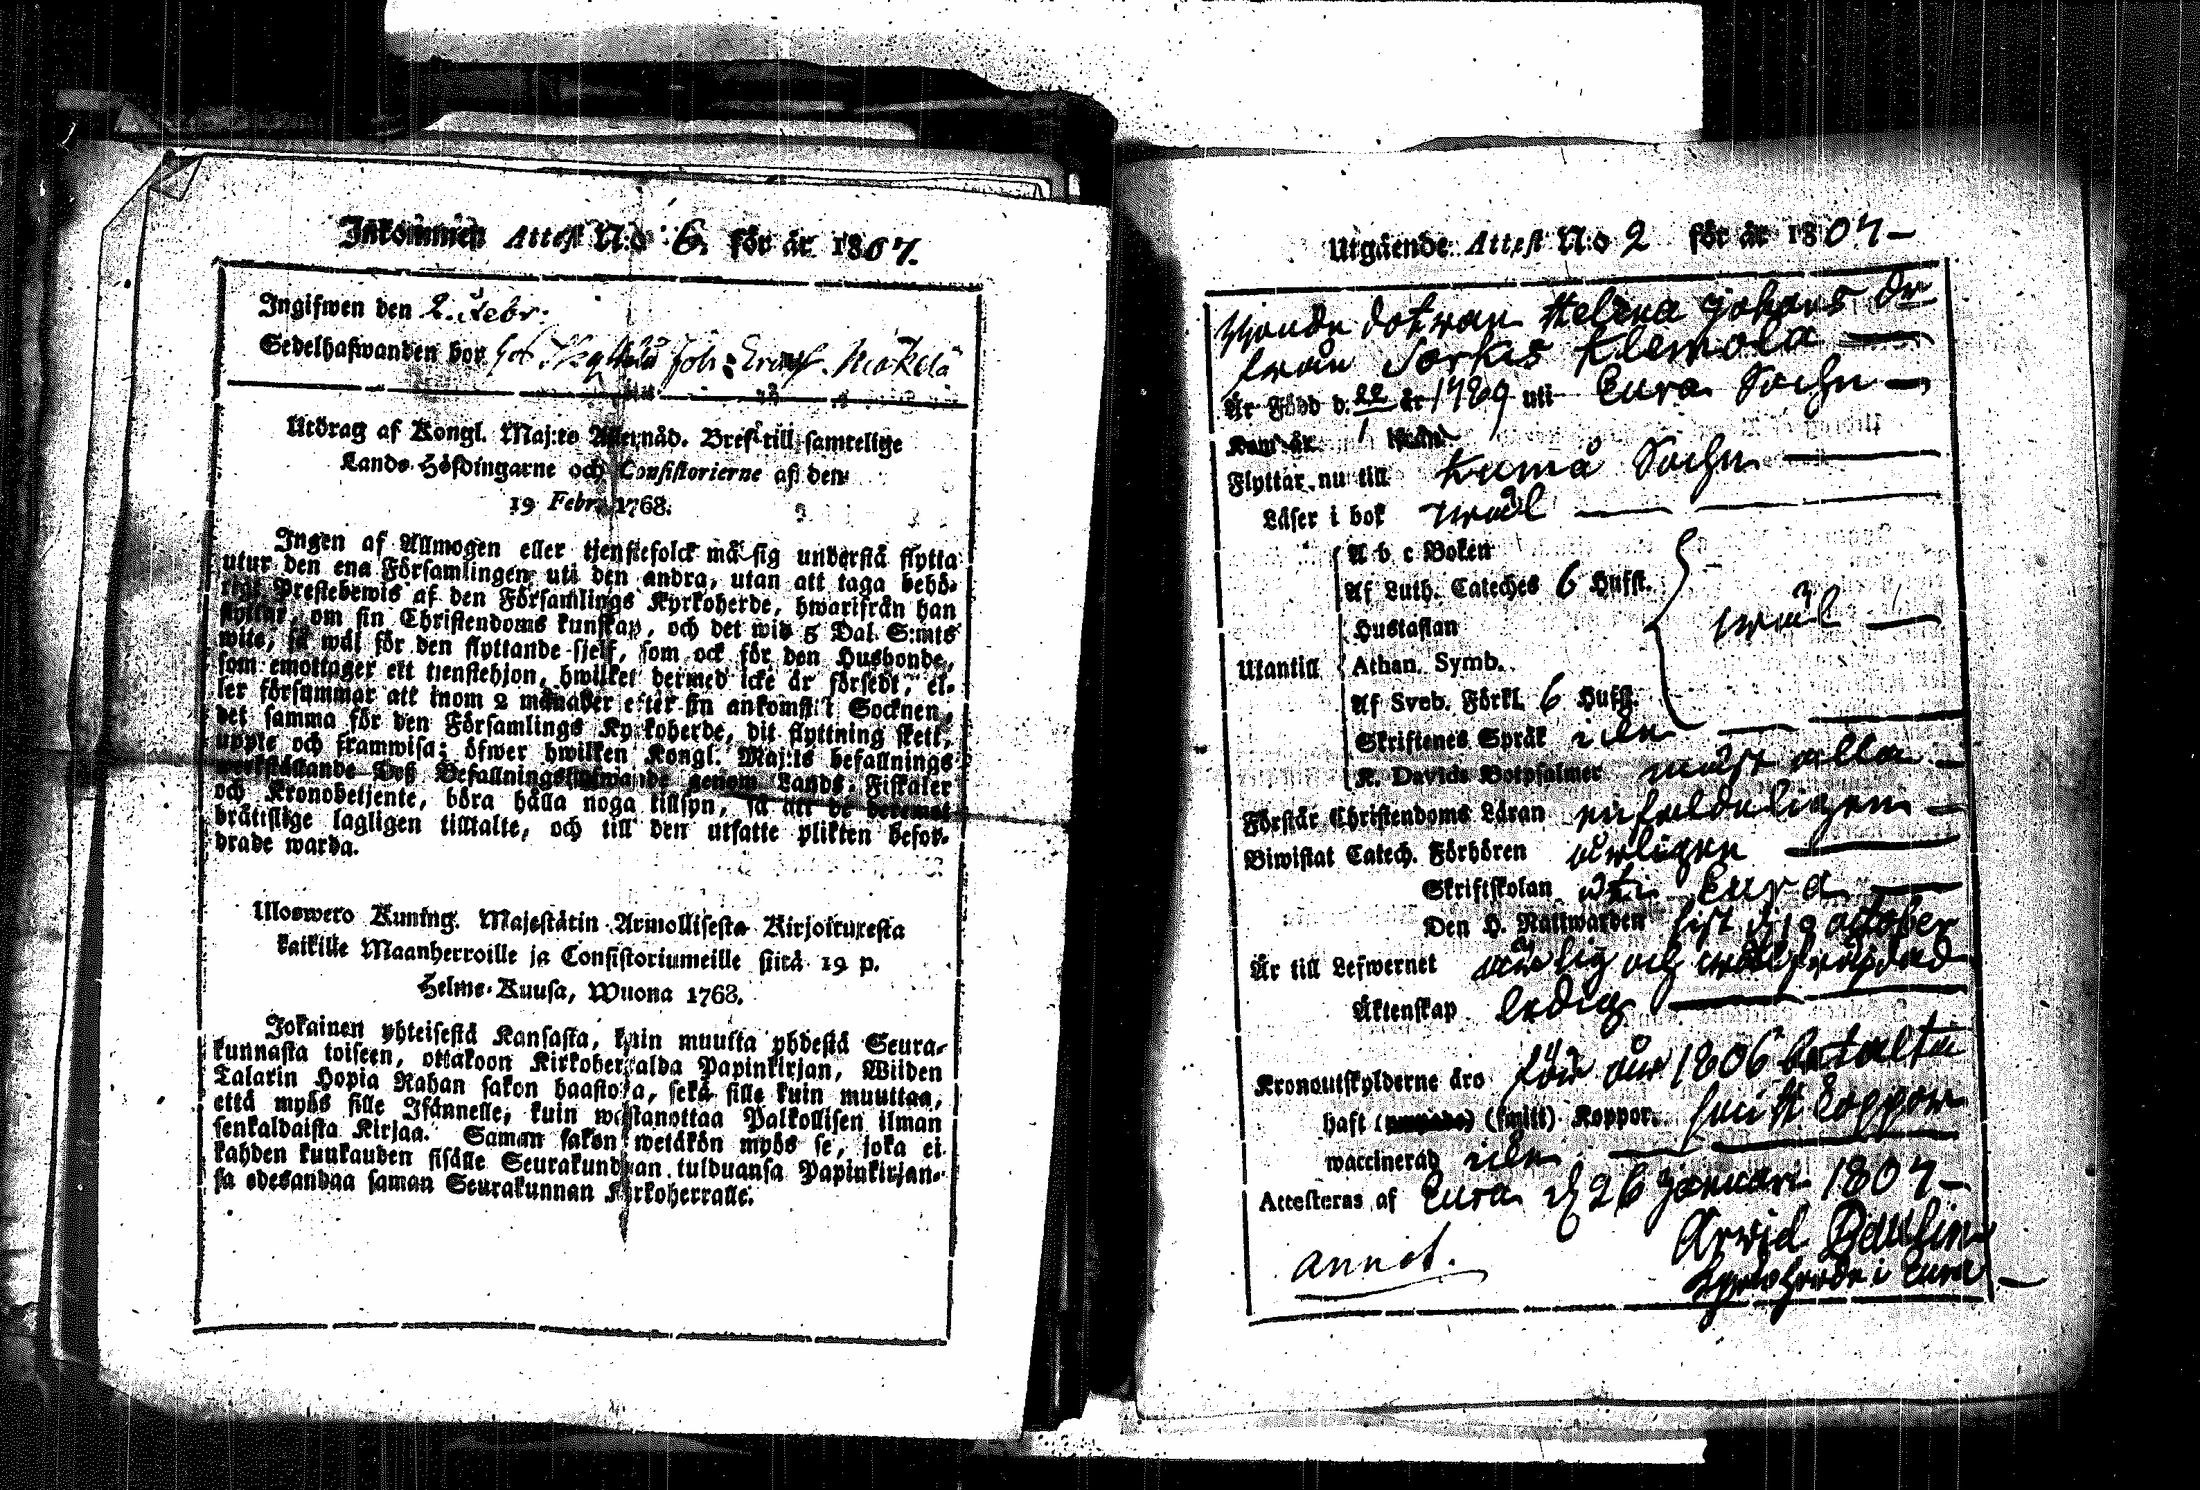 Inkommen Attest N:o 6. för år 1807.
Ingifwen den 2. Febr.
Sedelhafwanden bor hos Joh: Ersson Mäkelä
Utdrag af Kongl. Maj:ts Allernåd. Bref till samtelige
Lands-Höfdingarne och Consistorierne af den
19 Febr. 1768.
Ingen af Allmogen eller tjenstefolck må sig understå flytta
utur den ena Församlingen uti den andra, utan att taga behö-
rigt Prestebewis af den Församlings Kyrkoherde, hwarifrån han
flyttar, om sin Christendoms kunskap, och det wid 5 Dal. S:mts
wite, så wäl för den flyttande sjelf, som ock för den Husbonde,
som emottager ett tjenstehjon, hwilket dermed icke är försedt, el-
ler försummar att inom 2 månader efter sin ankomst i Socknen,
det samma för den Församlings Kyrkoherde, dit flyttning skett,
uppte och framwisa; öfwer hwilken Kongl. Maj:ts befallnings
werkställande Deß Befallningshafwande genom Lands-Fiskaler
och Kronobetjente, böra hålla noga tillsyn, så att de deremot
bråttslige lagligen tilltalte, och till den utsatte plikten befor-
drade warda.
Uloswero Kuning. Majestätin Armollisesta Kirjoituxesta
kaikille Maanherroille ja Consistoriumeille siitä 19 p.
Helme-Kuusa, Wuona 1768.
Jokainen yhteisestä Kansasta, kuin muutta yhdestä Seura-
kunnasta toiseen, ottakoon Kirkoherralda Papinkirjan, Wiiden
Talarin Hopia Rahan sakon haastolla, sekä sille kuin muuttaa,
että myös sille Isännelle, kuin wastanottaa Palkollisen ilman
senkaldaista Kirjaa. Saman sakon wetäkön myös se, joka ei
kahden kuukauden sisälle Seurakundaan tulduansa Papinkirjan-
sa edesandaa saman Seurakunnan Kirkoherralle.
Utgående Attest N:o 2 för år 1807 –
Bonde dotran Helena Johans Dr
från Sorkis Klemola
Är Född d. 22/1 år 1789 uti Eura Sochn
Kom år från
Flyttar nu till Kumå Sochn
Läser i bok swål
Utantill
A b c Boken
Af Luth. Cateches 6 Hufst.
Hustaflan
Athan. Symb.
Af Sveb. Förkl. 6 Hufst.
swål
Skriftenes Språk icke
K. Davids Botpsalmer mäst alla
Förstår Christendoms Läran enfaldeligen
Biwistat Catech. Förhören årligen
Skriftskolan uti Eura
Den H. Nattwarden sist d. 19 october
Är till Lefwernet ärlig och wälfrejdad
Äktenskap ledig
Kronoutskylderne äro för år 1806 betalta
haft (smitt) Koppor. smitt koppor
waccinerad icke
Attesteras af Eura d. 26 Januari 1807 –
Arwid Pawlin
Kyrkoherde i Eura
annot.